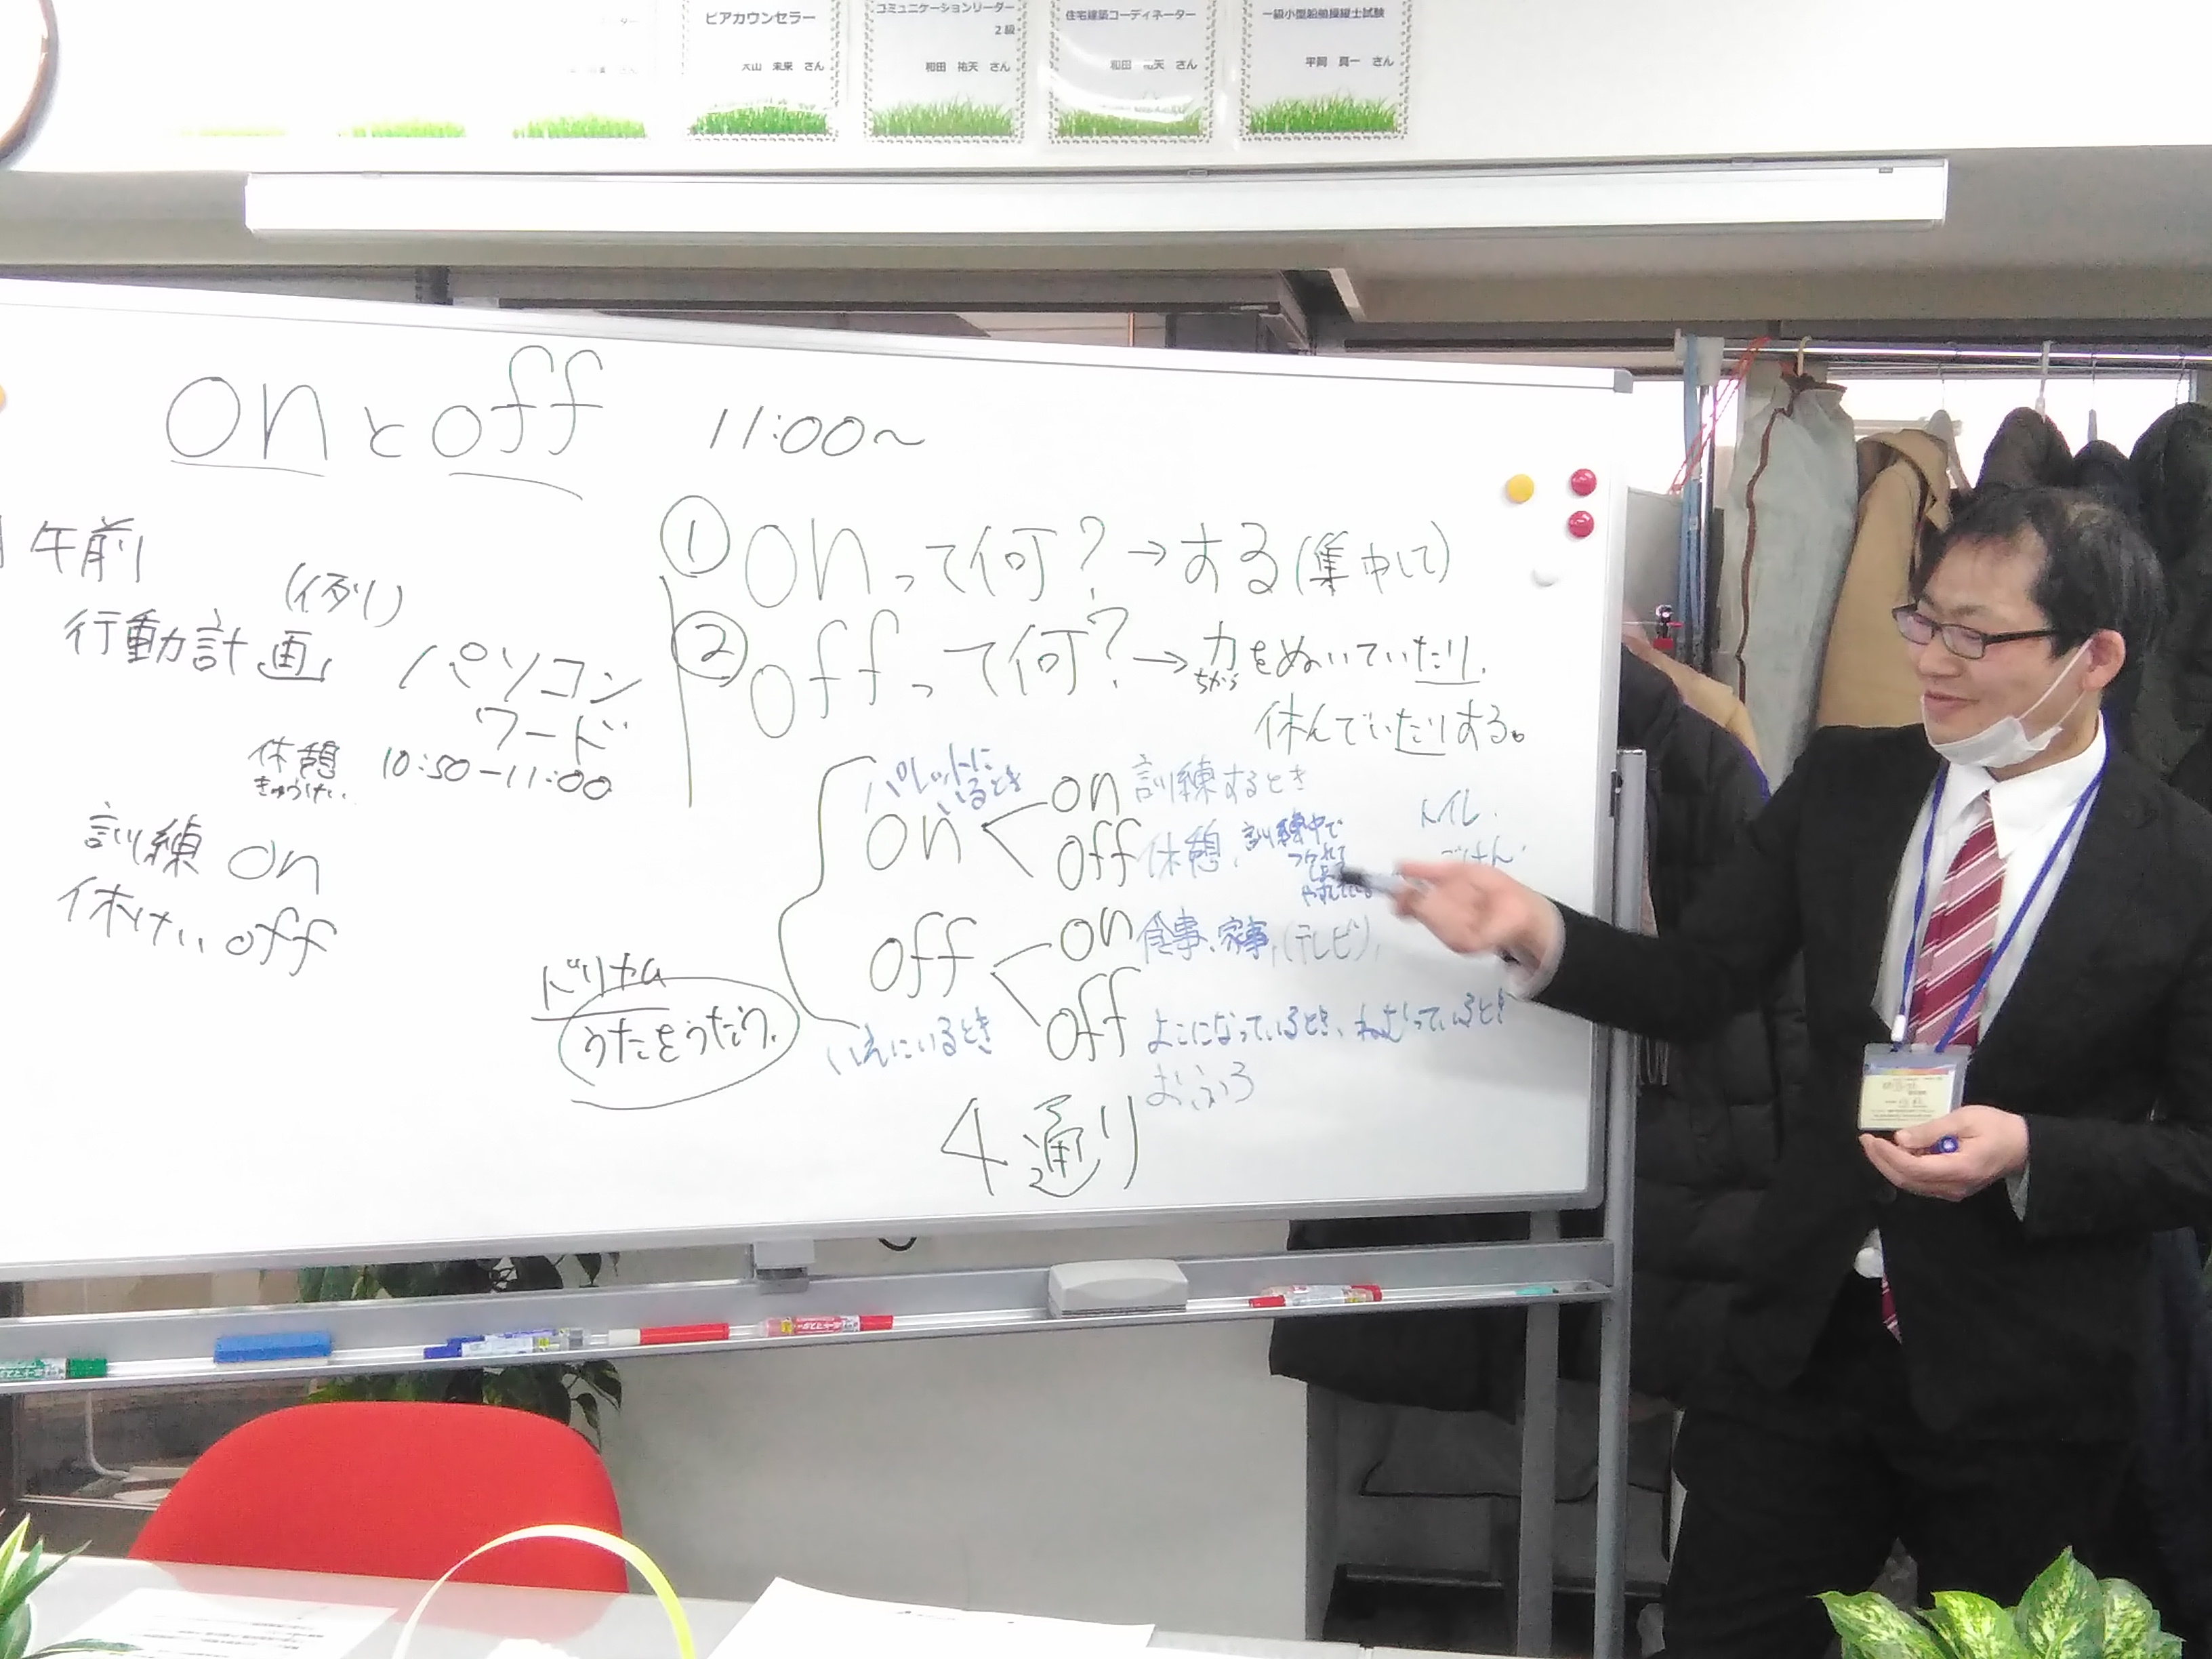 ピアカウンセラー
大山 未来 さん
コミュニケーションリーダー
2級
和田 祐天 さん
住宅建築コーディネーター
和田 祐天 さん
一級小型船舶操縦士試験
平岡 真一 さん
onとoff 11:00~
午前
(例)
行動計画 パソコン
ワード
休憩 10:50-11:00
きゅうけい
訓練 on
休けい off
ドリカム
うたをうたう
① onって何?→する(集中して)
② offって何?→力をぬいていたり、
ちから
休んでいたりする。
パレットに
いるとき
on
on 訓練するとき
off 休憩、訓練中で
つかれて
トイレ
ごはん
off
いえにいるとき
on 食事、家事、(テレビ)、
off よこになっているとき、ねむっているとき
おふろ
4通り